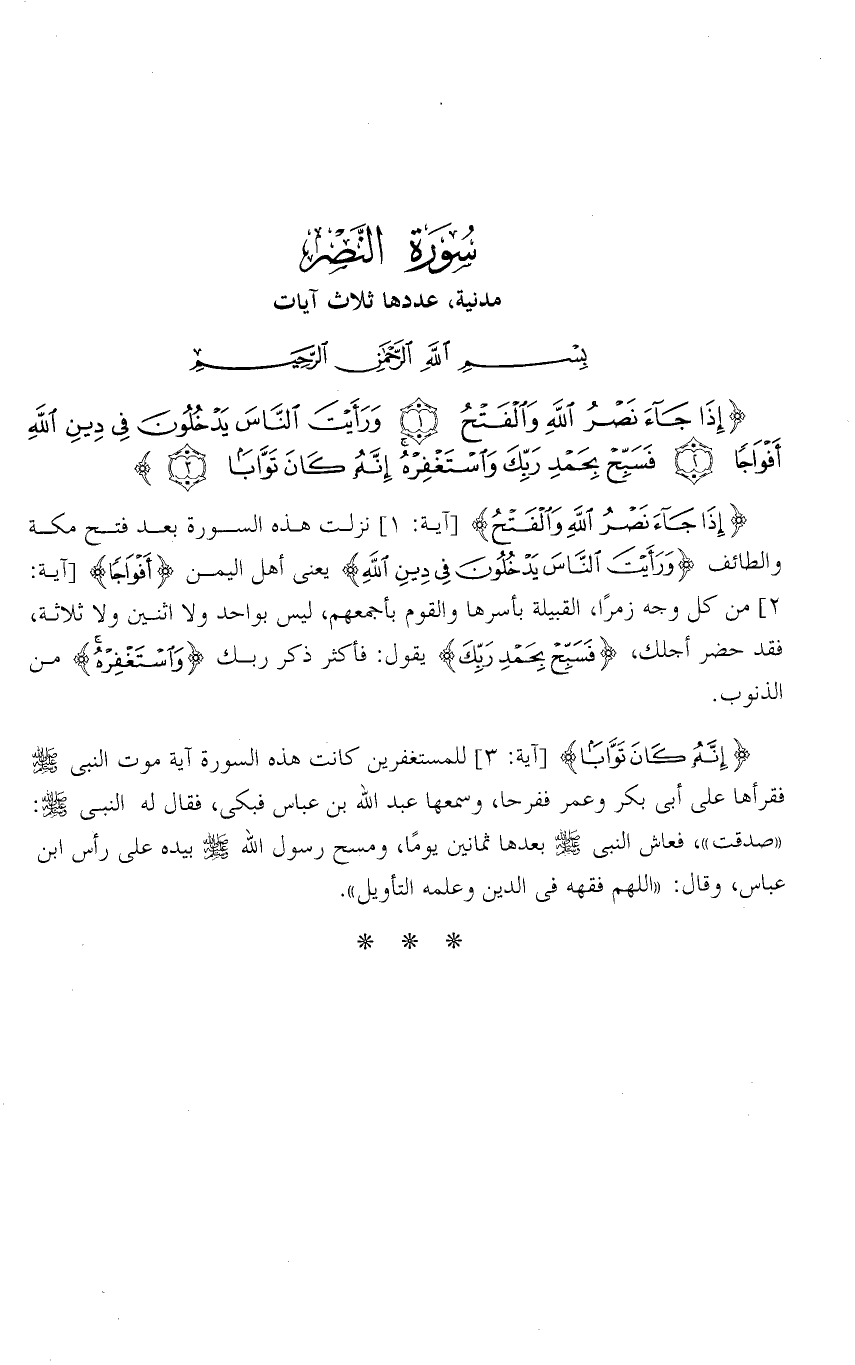 سُورَةُ النَّصْرِ
مدنية، عددها ثلاث آيات
بِسْمِ ٱللَّهِ ٱلرَّحْمَٰنِ ٱلرَّحِيمِ
﴿إِذَا جَآءَ نَصْرُ ٱللَّهِ وَٱلْفَتْحُ ١ وَرَأَيْتَ ٱلنَّاسَ يَدْخُلُونَ فِى دِينِ ٱللَّهِ
أَفْوَاجًا ٢ فَسَبِّحْ بِحَمْدِ رَبِّكَ وَٱسْتَغْفِرْهُ ۚ إِنَّهُۥ كَانَ تَوَّابًۢا ٣ ﴾
﴿إِذَا جَآءَ نَصْرُ ٱللَّهِ وَٱلْفَتْحُ﴾ [آية: ١] نزلت هذه السورة بعد فتح مكة
والطائف ﴿وَرَأَيْتَ ٱلنَّاسَ يَدْخُلُونَ فِى دِينِ ٱللَّهِ﴾ يعنى أهل اليمن ﴿أَفْوَاجًا﴾ [آية:
٢] من كل وجه زمرًا، القبيلة بأسرها والقوم بأجمعهم، ليس بواحد ولا اثنين ولا ثلاثة،
فقد حضر أجلك، ﴿فَسَبِّحْ بِحَمْدِ رَبِّكَ﴾ يقول: فأكثر ذكر ربك ﴿وَٱسْتَغْفِرْهُ ۚ﴾ من
الذنوب.
﴿إِنَّهُۥ كَانَ تَوَّابًۢا﴾ [آية: ٣] للمستغفرين كانت هذه السورة آية موت النبى ﷺ
فقرأها على أبى بكر وعمر ففرحا، وسمعها عبد الله بن عباس فبكى، فقال له النبى ﷺ:
«صدقت»، فعاش النبى ﷺ بعدها ثمانين يومًا، ومسح رسول الله ﷺ بيده على رأس ابن
عباس، وقال: «اللهم فقهه فى الدين وعلمه التأويل».
* * *